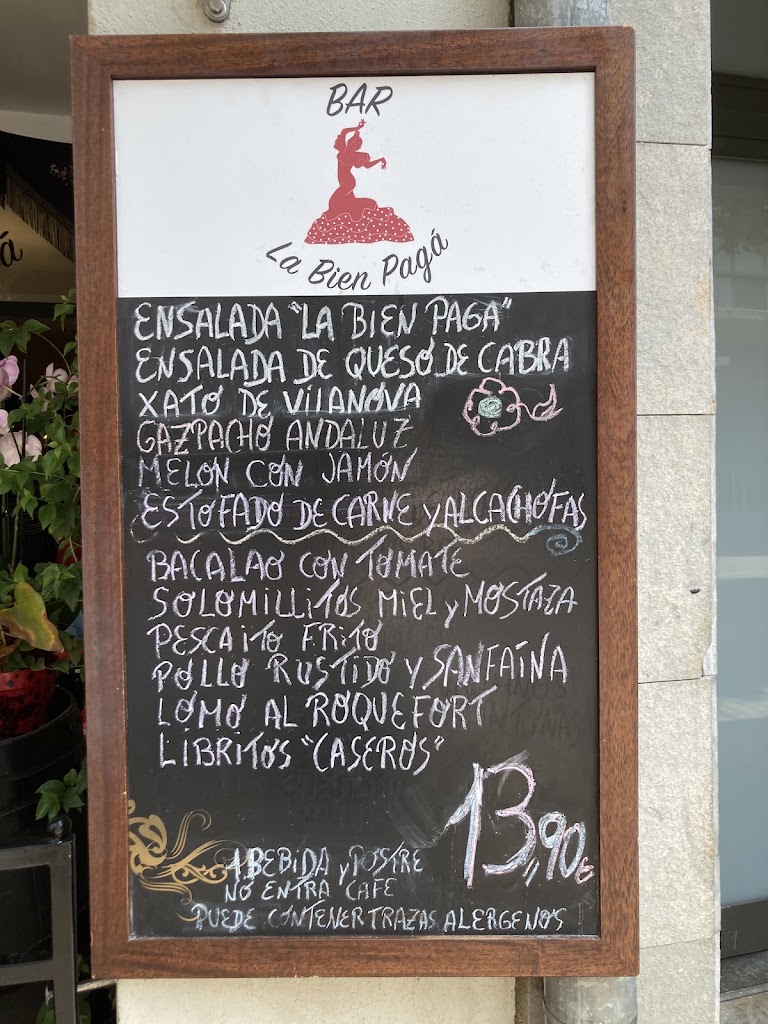 BAR
La Bien Pagá
ENSALADA "LA BIEN PAGA"
ENSALADA DE QUESO DE CABRA
XATO DE VILANOVA
GAZPACHO ANDALUZ
MELON CON JAMÓN
ESTOFADO DE CARNE y ALCACHOFAS
BACALAO CON TOMATE
SOLOMILLITOS MIEL y MOSTAZA
PESCAITO FRITO
POLLO RUSTIDO y SANFAÍNA
LOMO AL ROQUEFORT
LIBRITOS "CASEROS"
13,90€
1 BEBIDA y POSTRE
NO ENTRA CAFE
PUEDE CONTENER TRAZAS ALERGENOS